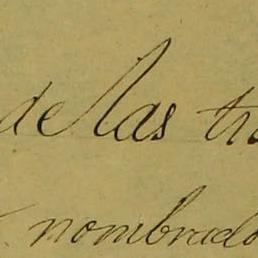 de las
nombrado